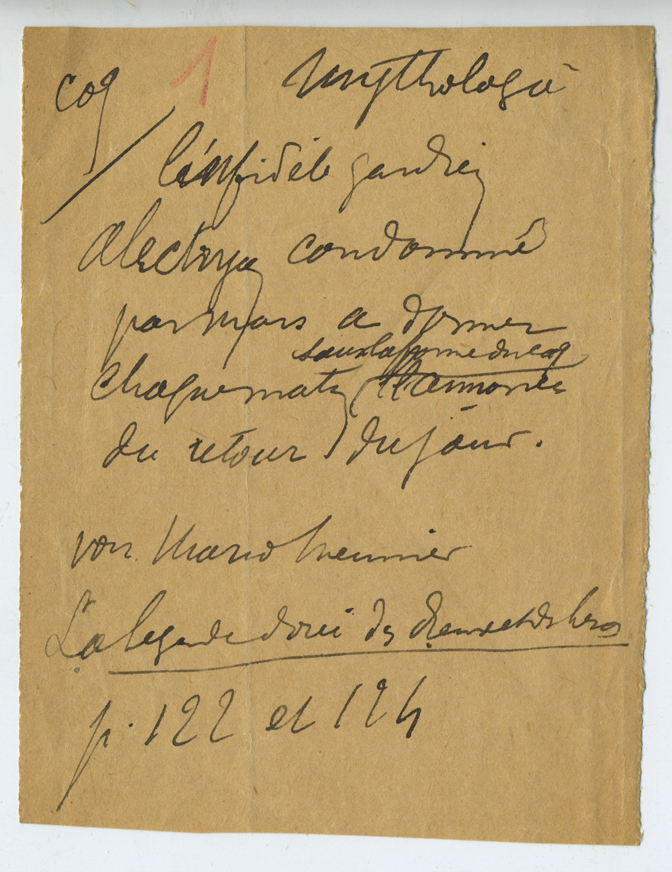 coq 1 Mythologie
l'infidèle gardien
Alectryon condamné
par Mars a donner
sous la forme du coq
chaque matin l'annonce
du retour du jour.
voir Mario Meunier
La légende dorée des dieux et des héros
p. 122 et 124